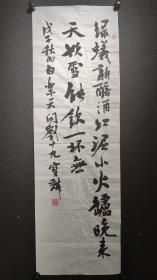 绿蚁新醅酒红泥小火炉晚来
天欲雪能饮一杯无
戊子秋白乐天问刘十九